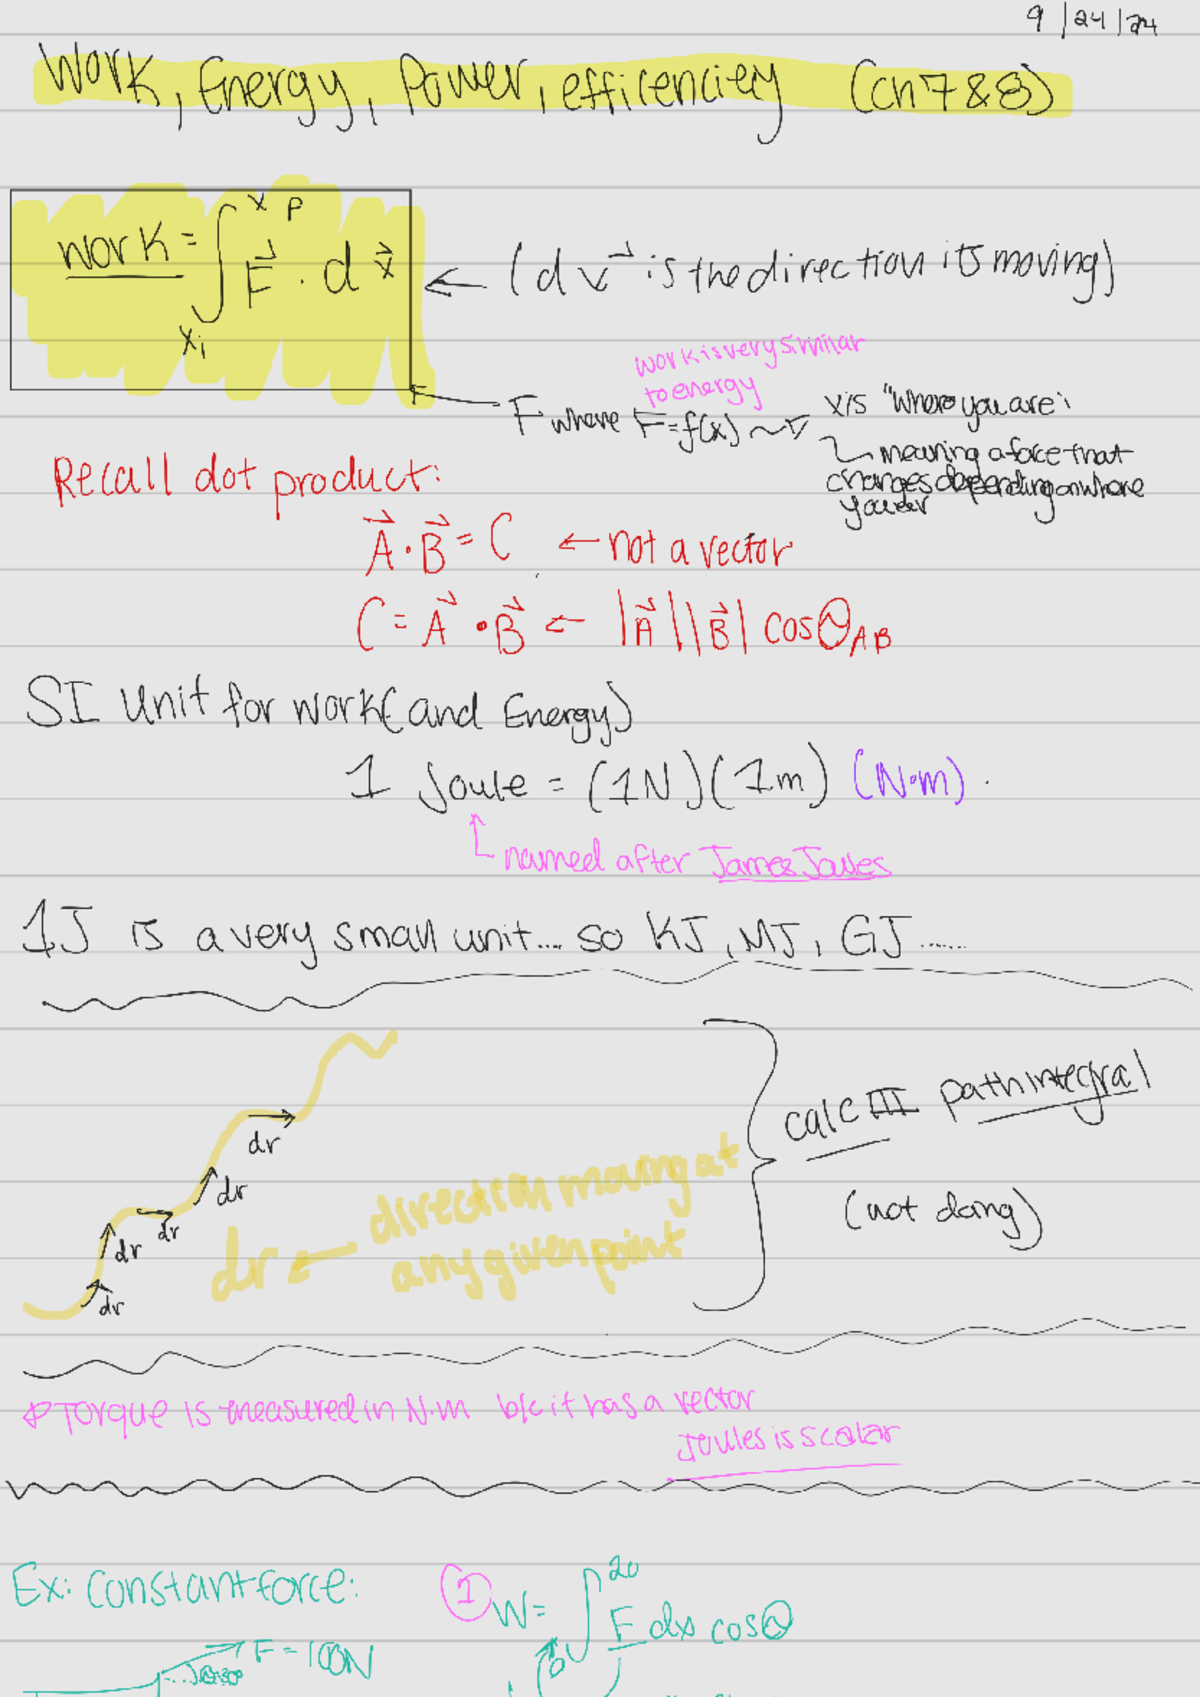 9/24/24
Work, Energy, Power, efficenciey (ch 7 & 8)
work = ∫ F⃗ · d x⃗
x P
xi
← (d v⃗ is the direction its moving)
work is very similar
to energy
F where F = f(x)
x is "where you are"
meaning a force that
changes depending on where
Recall dot product:
A⃗ · B⃗ = C ← not a vector
C = A⃗ · B⃗ ← |A⃗| |B⃗| cosθAB
SI Unit for work (and Energy)
1 Joule = (1N)(1m) (N·m).
named after James Joules
1J is a very small unit... so KJ, MJ, GJ......
calc III path integral
(not doing)
dr
dr
dr
dr
dr
dr ← direction moving at
any given point
Torque is measured in N·m b/c it has a vector
Joules is scalar
Ex: Constant force:
① W = ∫ F dx cosθ
20
0
F = 100N